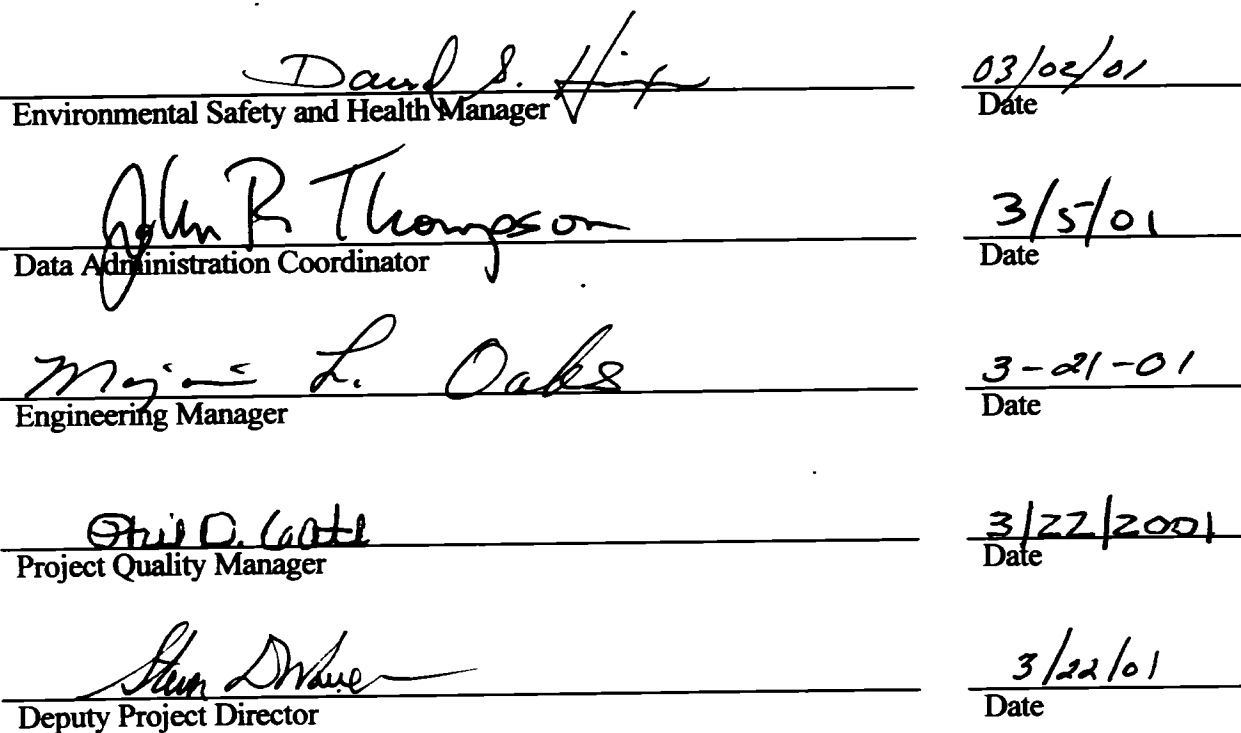 David S. 03/02/01
Environmental Safety and Health Manager Date
John R Thompson 3/5/01
Data Administration Coordinator Date
L. Oaks 3-21-01
Engineering Manager Date
D. 3/22/2001
Project Quality Manager Date
3/22/01
Deputy Project Director Date